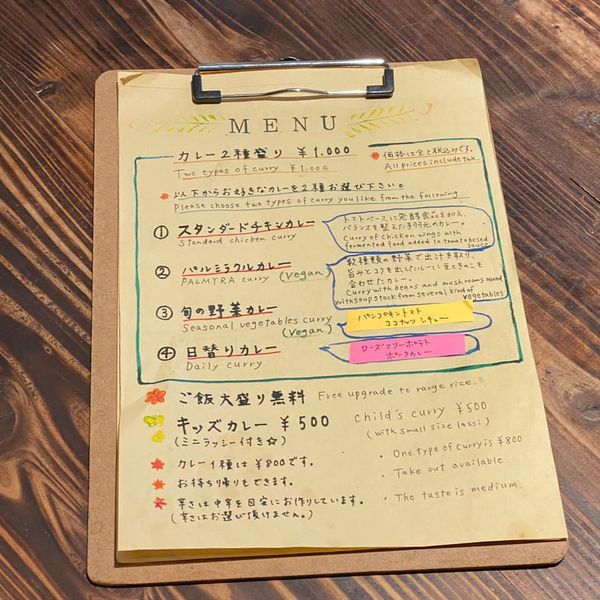 MENU
カレー2種盛り ¥1.000
Two types of curry ¥1.000
価格は全て税込みです。
All prices include tax.
以下からお好きなカレーを2種お選び下さい。
Please choose two types of curry you like from the following
① スタンダードチキンカレー
Standard chicken curry
トマトベースに発酵食品を加え、
バランスを整えた手羽元のカレー。
Curry of chicken wings with
fermented food added to tomato besed
sauce
② パルミラクルカレー
PALMYRA curry (vegan)
数種類の野菜で出汁を取り、
旨みとコクを出したカレーに豆ときのこを
合わせたカレー。
Curry with beans and mushrooms mixed
with soup stock from several kind of
vegetables
③ 旬の野菜カレー
Seasonal vegetables curry
(vegan)
パンプキントマト
ココナッツシチュー
④ 日替りカレー
Daily curry
ローズマリーポテト
ポークカレー
ご飯大盛り無料 Free upgrade to range rice.
キッズカレー ¥500
(ミニラッシー付き☆)
child's curry ¥500
(with small size lassi)
カレー1種は¥800です。
・One type of curry is ¥800
お持ち帰りもできます。
・Take out available
辛さは中辛を目安にお作りしています。
(辛さはお選び頂けません。)
・The taste is medium